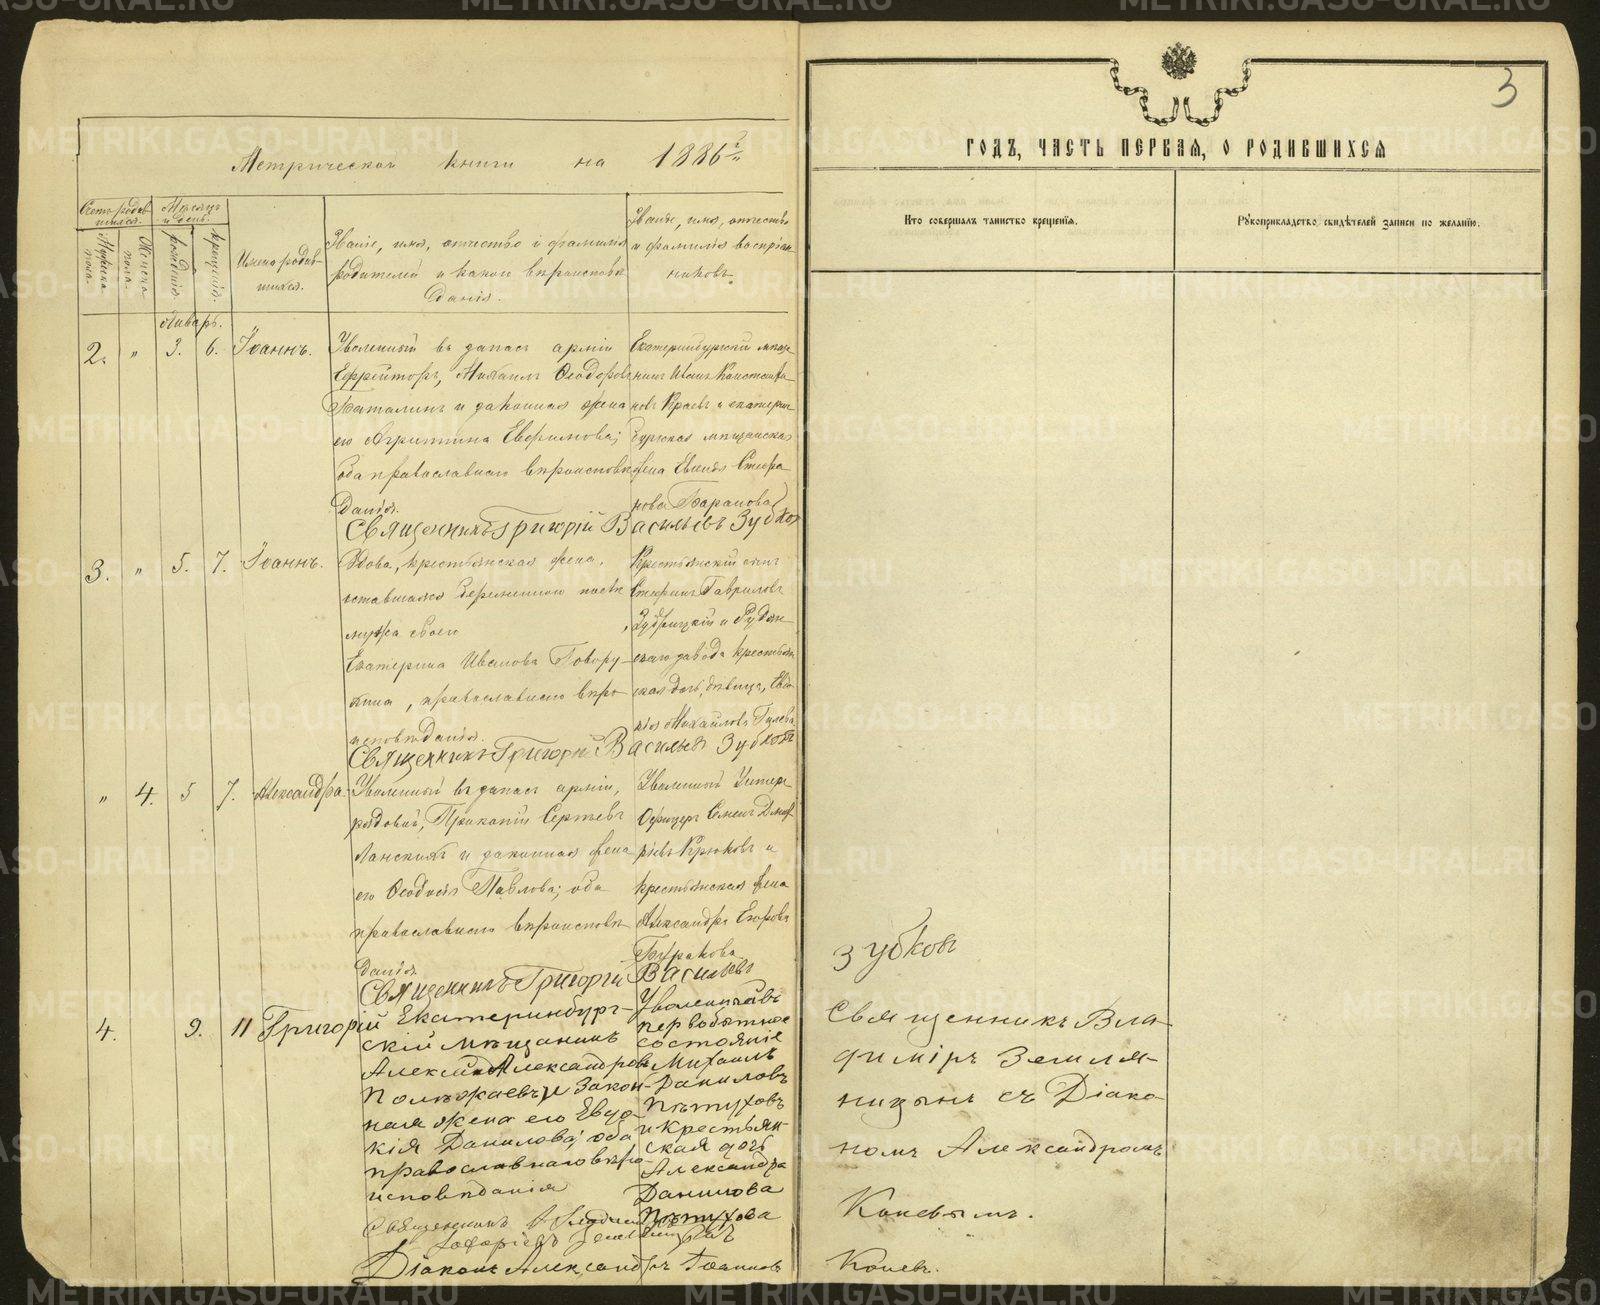 3
Метрической книги на 1886 г.
ГОДЪ, ЧАСТЬ ПЕРВАЯ, О РОДИВШИХСЯ
Счетъ родив-
шихся.
Мужеска
пола.
Женска
пола.
Мѣсяцъ
и день.
рожденія.
крещенія.
Имена родив-
шихся.
Званіе, имя, отчество и фамилія
родителей и какого вѣроисповѣ-
данія.
Званіе, имя, отчество
и фамилія воспріем-
никовъ.
Кто совершалъ таинство крещенія.
Рукоприкладство свидѣтелей записи по желанію.
Январь.
2. " 3. 6. Іоаннъ.
Уволенный въ запасъ арміи
Ефрейторъ, Михаилъ Ѳеодоровъ
и законная жена
его Агриппина Евфимова;
оба православнаго вѣроисповѣ-
данія.
Екатеринбургскій мѣща-
нинъ Иванъ Константи-
новъ Краевъ и екатерин-
бургская мѣщанская
жена Евгенія Стефа-
нова Баранова
Священникъ Григорій Васильевъ Зубков
3. " 5. 7. Іоаннъ.
Вдова, крестьянская жена,
оставшаяся беременною послѣ
мужа своего
Екатерина Иванова Говору-
хина, православнаго вѣро-
исповѣданія.
Крестьянскій сынъ
Стефанъ Гавриловъ
и Рудян-
скаго завода крестьян-
ская дочь, дѣвица, Евдо-
кія Михайлова
Священникъ Григорій Васильевъ Зубковъ
" 4. 5 7. Александра.
Уволенный въ запасъ арміи,
рядовой, Прокопій Сергѣевъ
Ланскихъ и законная жена
его Ѳеодосія Павлова; оба
православнаго вѣроисповѣ-
данія
Уволенный Унтеръ-
Офицеръ Семенъ Димит-
ріевъ Крюковъ и
крестьянская жена
Александра Егорова
Буракова
Священникъ Григорій Васильевъ
Зубковъ
4. 9. 11 Григорій
Екатеринбург-
скій мѣщанинъ
Александръ Александровъ
Полежаевъ и закон-
ная жена его Евдо-
кія Данилова; оба
православнаго вѣро-
исповѣданія
Уволенный въ
первобытное
состояніе
Михаилъ
Даниловъ
Пѣтуховъ
и крестьян-
ская дочь
Александра
Данилова
Пѣтухова
Священникъ Вла-
диміръ Земля-
ницынъ съ Діако-
номъ Александромъ
Коневымъ.
Священникъ Владиміръ
Діаконъ Александръ Іоанновъ
Коневъ.
METRIKI.GASO-URAL.RU